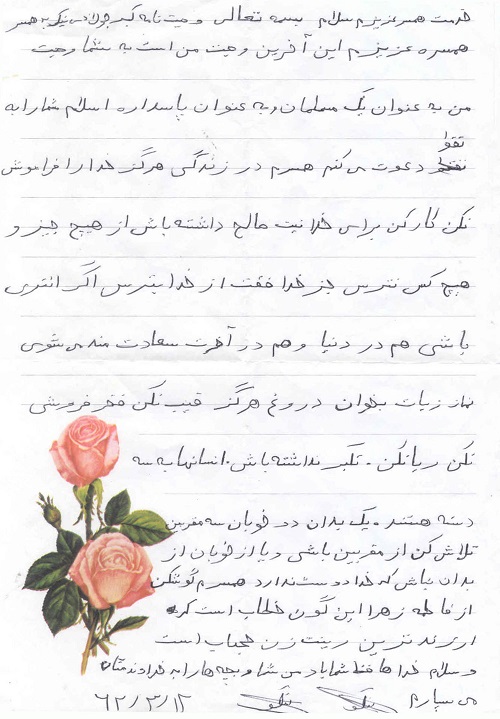 خدمت همسر عزیزم سلام بسمه تعالی وصیت نامه کبر جولادس نیکو به همسر
همسره عزیزم این آخرین وصیت من است به شما وصیت
من به عنوان یک مسلمان و به عنوان پاسداره اسلام شما را به
تقوا
دعوت می کنم همسرم در زندگی هرگز خدا را فراموش
نکن کار کن براس خدا نیت صالح داشته باش از هیچ چیز و
هیچ کس نترس جز خدا فقت از خدا بترس اگر اینتری
باشی هم در دنیا و هم در آخرت سعادت مند می شوی
نماز زیات بخوان دروغ هرگز قیب نکن فخر فروشی
نکن ریا نکن - تکبر نداشته باش. انسانها به سه
دسته هستند - یک بدان دو خوبان سه مقربین
تلاش کن از مقربین باشی و یا از خوبان از
بدان نباش که خدا دوست ندارد همسرم گوش کن
از فاطمه زهرا این گون خطاب است که
ارزنده ترین زینت زن حجاب است
و سلام خدا حافظ شما باد من شما و بچه ها را به خداوند متان
می سپارم نیکو نیکو ۶۲/۳/۱۲